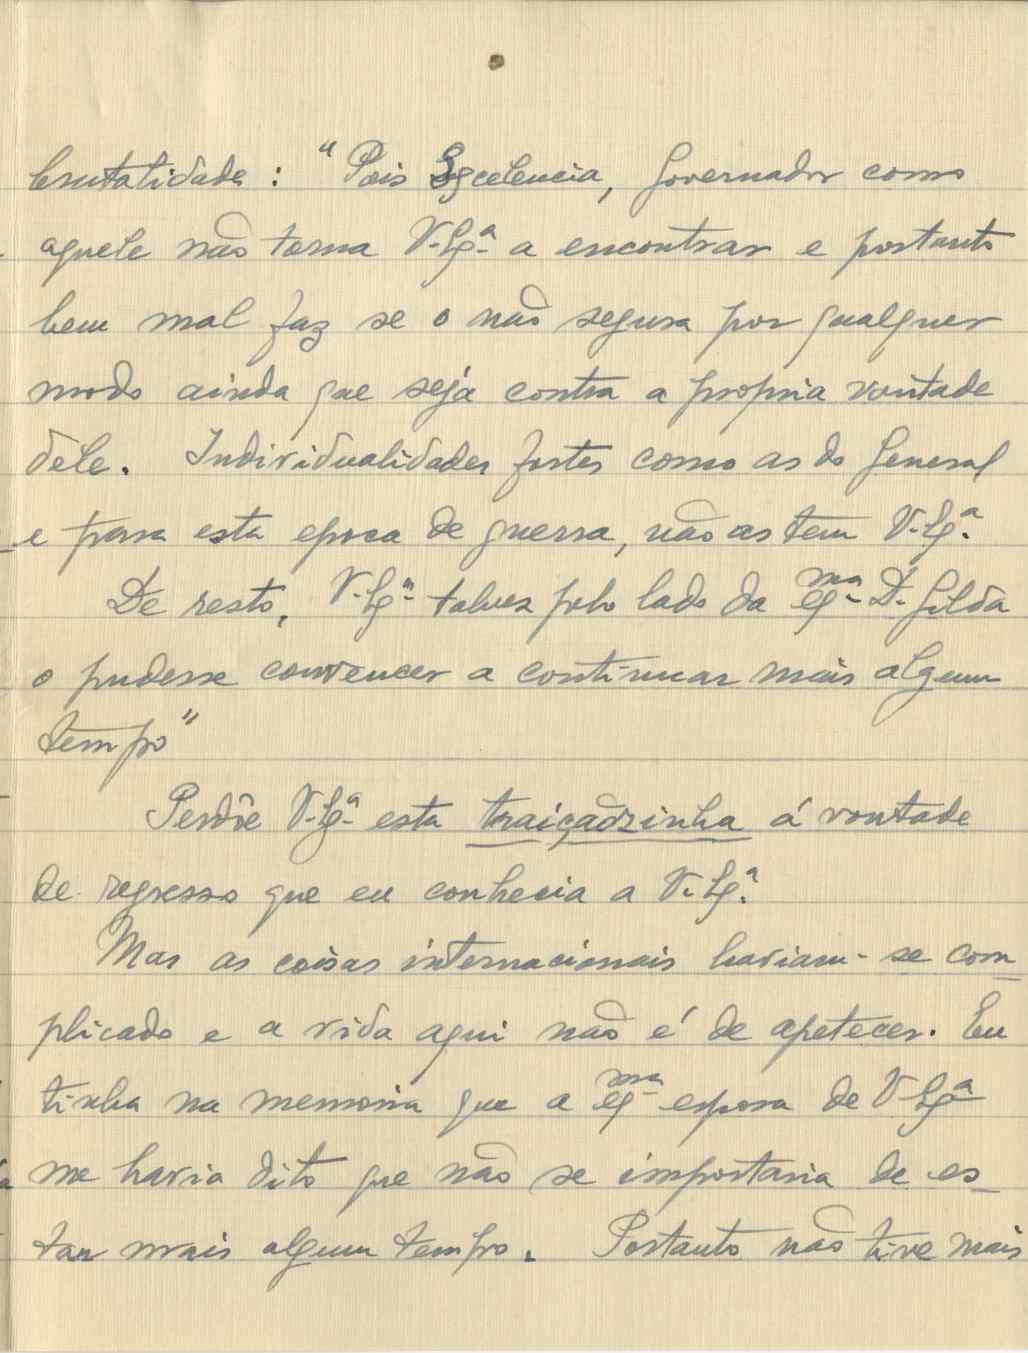 brutalidade: "Pois Excelencia, Governador como
aquele não torna V. Exª a encontrar e portanto
bem mal faz se o não segura por qualquer
modo ainda que seja contra a propria vontade
dele. Individualidades fortes como as do General
e para esta epoca de guerra, não as tem V. Exª.
De resto, V. Exª talvez pelo lado da Exma D. Gilda
o pudesse convencer a continuar mais algum
tempo"
Perdôe V. Exª esta traiçãozinha á vontade
de regresso que eu conhecia a V. Exª.
Mas as coisas internacionais haviam-se com
plicado e a vida aqui não é de apetecer. Eu
tinha na memoria que a Exma esposa de V Exª
me havia dito que não se importaria de es-
tar mais algum tempo. Portanto não tive mais